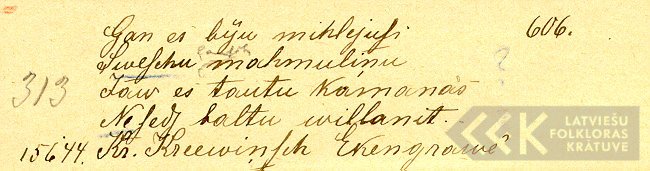 Gan es biju mihlejusi 606.
Sweschu mahmuliņu
313 Jaw es tautu kamanās
Nosedz baltu willaniti.
15644. Kr. Kreewiņsch Ekengrawē
LATVIEŠU
FOLKLORAS
KRĀTUVE